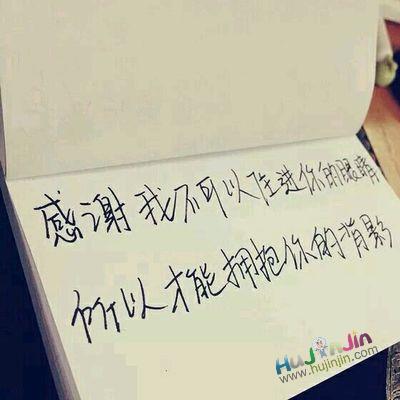 感谢我不可以住进你的眼睛
所以才能拥抱你的背影
HuJinJin
www.hujinjin.com